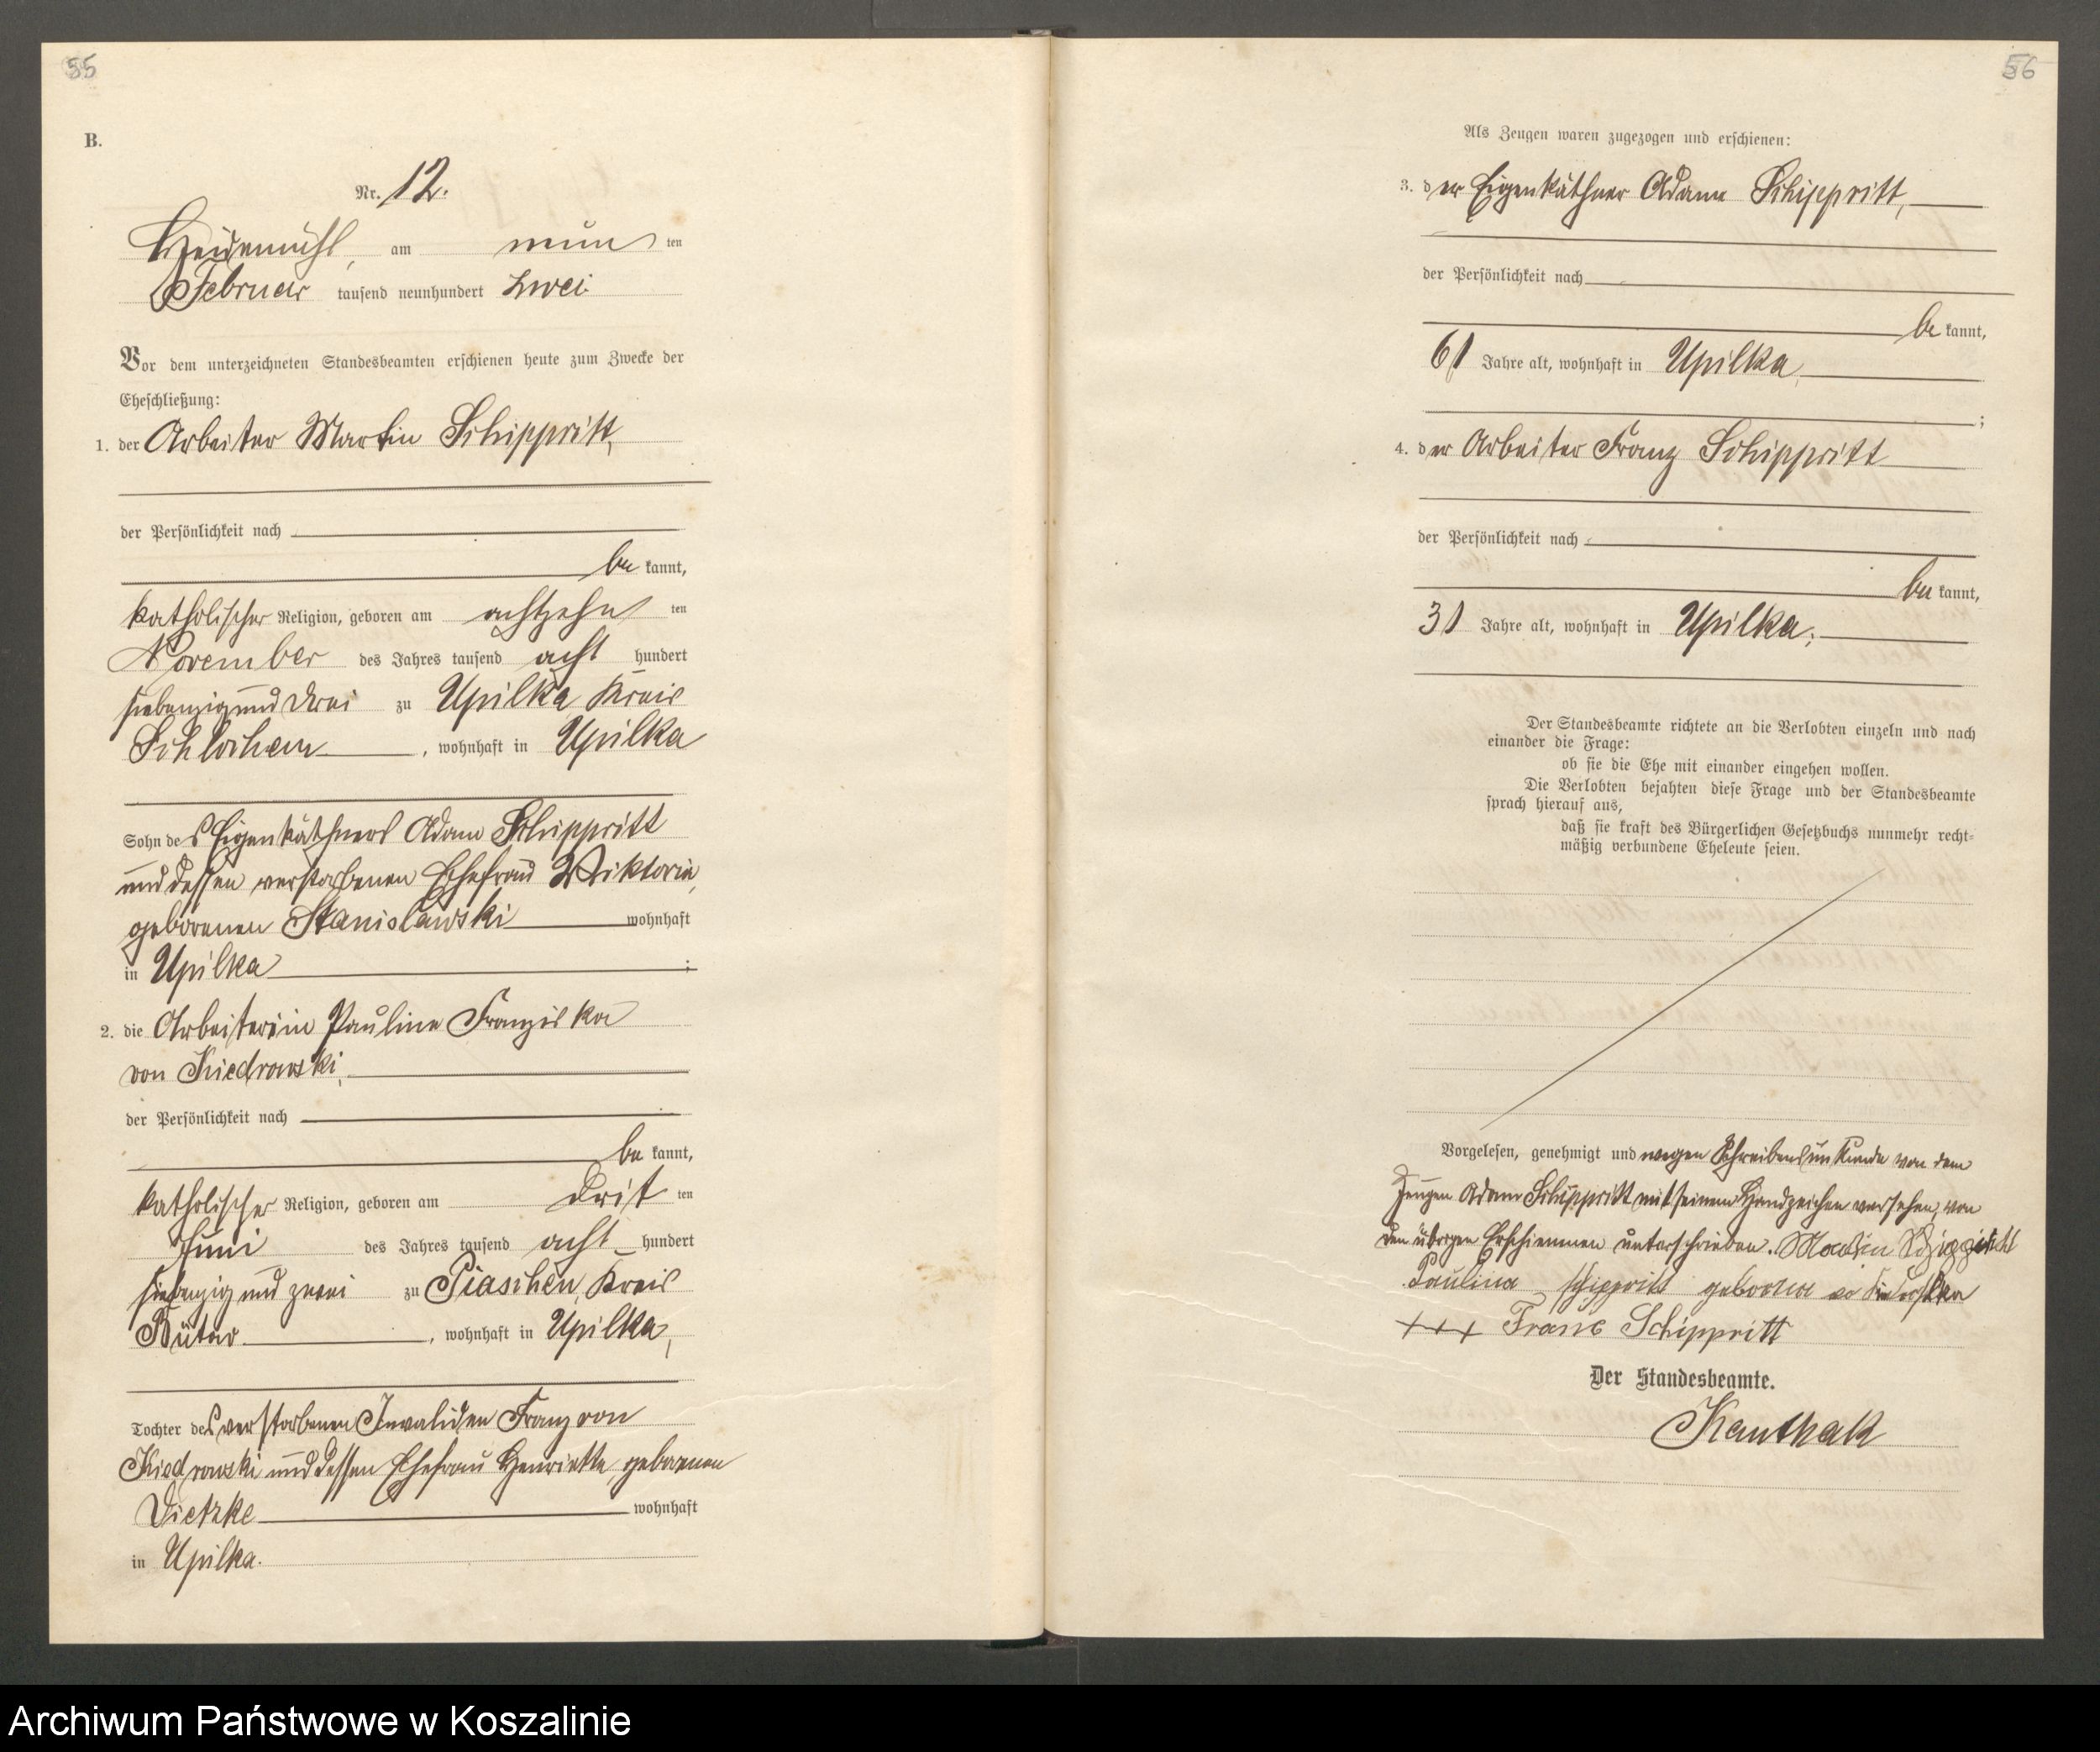 55
B.
Nr. 12.
Heidemühl, am neun ten
Februar tausend neunhundert zwei
Vor dem unterzeichneten Standesbeamten erschienen heute zum Zwecke der
Eheschließung:
1. der Arbeiter Martin Schippritt,
der Persönlichkeit nach
be kannt,
katholischer Religion, geboren am achtzehn ten
November des Jahres tausend acht hundert
siebenzig und drei zu Upilka Kreis
Schlochem, wohnhaft in Upilka
Sohn des Eigenkäthners Adam Schippritt
und dessen verstorbenen Ehefrau Wiktoria,
geborenen Stanislawski wohnhaft
in Upilka ;
2. die Arbeiterin Pauline Franziska
von Kiedrowski,
der Persönlichkeit nach
be kannt,
katholischer Religion, geboren am drit ten
Juni des Jahres tausend acht hundert
siebenzig und zwei zu Piaschen, Kreis
Bütow, wohnhaft in Upilka,
Tochter des verstorbenen Invaliden Franz von
Kiedrowski und dessen Ehefrau Henriette, geborenen
Dietzke wohnhaft
in Upilka.
56
Als Zeugen waren zugezogen und erschienen:
3. der Eigenkäthner Adam Schippritt,
der Persönlichkeit nach
be kannt,
61 Jahre alt, wohnhaft in Upilka,
;
4. der Arbeiter Franz Schippritt
der Persönlichkeit nach
be kannt,
31 Jahre alt, wohnhaft in Upilka;
Der Standesbeamte richtete an die Verlobten einzeln und nach
einander die Frage:
ob sie die Ehe mit einander eingehen wollen.
Die Verlobten bejahten diese Frage und der Standesbeamte
sprach hierauf aus,
daß sie kraft des Bürgerlichen Gesetzbuchs nunmehr recht-
mäßig verbundene Eheleute seien.
Vorgelesen, genehmigt und wegen Schreibensunkunde von dem
Zeugen Adam Schippritt mit seinem Handzeichen versehen, von
den übrigen Erschienenen unterschrieben. Martin
Paulina Schippritt geborne
+++ Franc Schippritt
Der Standesbeamte.
Kanthak
Archiwum Państwowe w Koszalinie